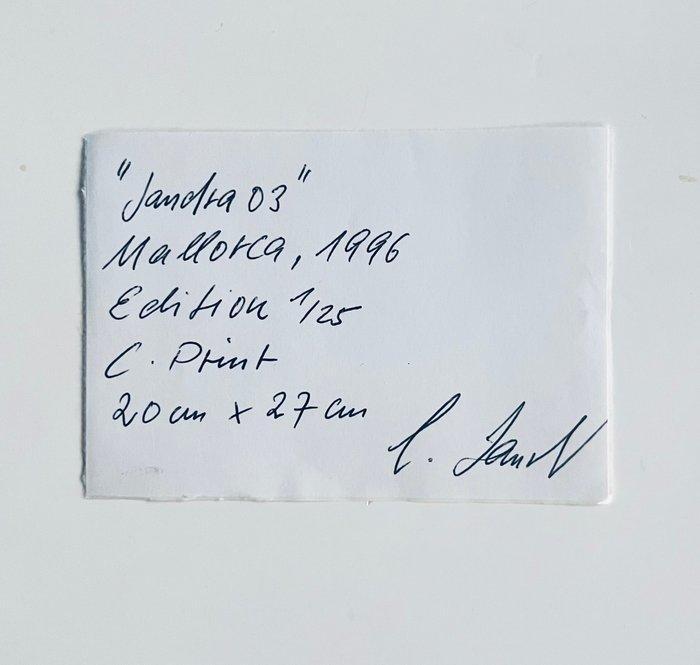 "Sandra 03"
Mallorca, 1996
Edition 1/25
C. Print
20 cm x 27 cm